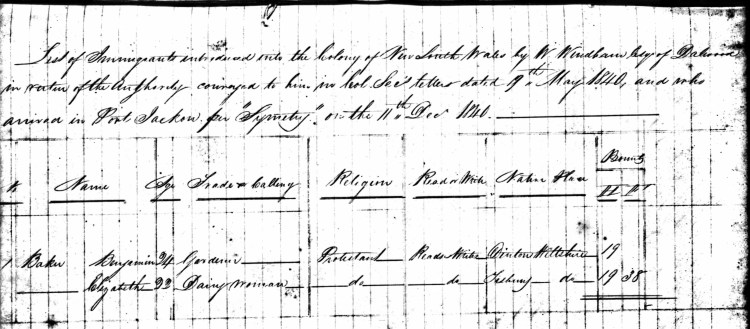 List of Immigrants introduced into the Colony of New South Wales by W Windham Esqr of Dalwood
in virtue of the authority conveyed to him in Col. Secs letters dated 9th May 1840, and who
arrived in Port Jackson per "Symetry" on the 11th Decr 1840.
Bounty
No Name Age Trade or Calling Religion Read or Write Native Place
1 Baker Benjamin 24 Gardener Protestant Read & Write Dinton Wiltshire 19
Elizabeth 22 Dairy woman do do do 19 38